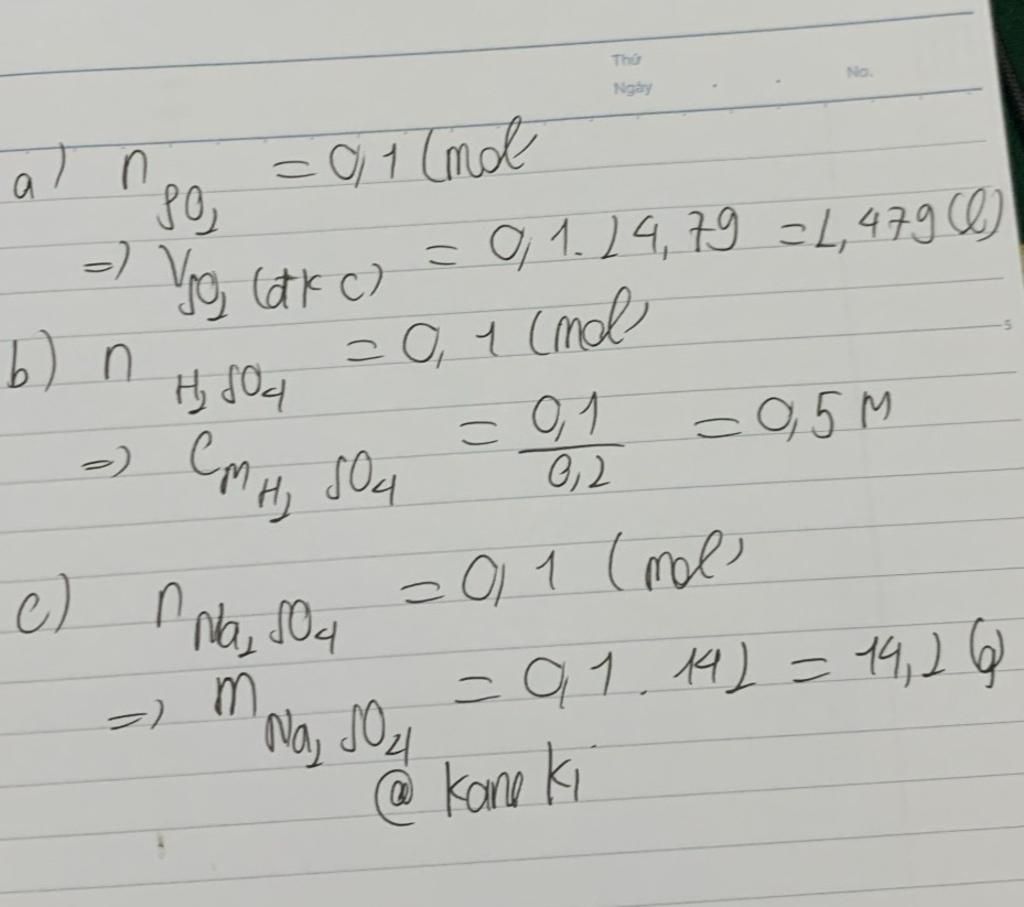 Thứ
Ngày . . No.
a) n SO2 = 0,1 (mol
=) VSO2 (đkc) = 0,1.24,79 = 2,479 (l)
5
b) n H2SO4 = 0,1 (mol)
=) CM H2SO4 = 0,1/0,2 = 0,5 M
c) n Na2SO4 = 0,1 (mol)
=) m Na2SO4 = 0,1.142 = 14,2 (g)
@ kaneki